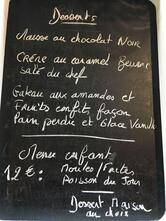 Desserts
Mousse au chocolat Noir
Crème au caramel Beurre
salé du chef
Gateau aux amandes et
Fruits confits façon
Pain perdu et Glace Vanille
Menu enfant
12€: Moules/Frites
Poisson du Jour
Dessert Maison
au choix